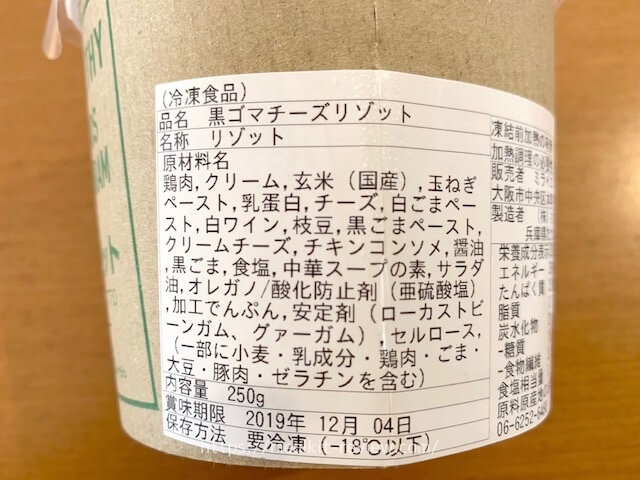 THY
（冷凍食品）
品名 黒ゴマチーズリゾット
名称 リゾット
原材料名
鶏肉,クリーム,玄米（国産）,玉ねぎ
ペースト,乳蛋白,チーズ,白ごまペー
スト,白ワイン,枝豆,黒ごまペースト,
クリームチーズ,チキンコンソメ,醤油
,黒ごま,食塩,中華スープの素,サラダ
油,オレガノ/酸化防止剤（亜硫酸塩）
,加工でんぷん,安定剤（ローカストビ
ーンガム、グァーガム）,セルロース,
（一部に小麦・乳成分・鶏肉・ごま・
大豆・豚肉・ゼラチンを含む）
内容量 250g
賞味期限 2019年 12月 04日
保存方法 要冷凍（-18℃以下）
凍結前加熱の有
加熱調理の必要
販売者
大阪市中央区
製造者 （株）
兵庫県
栄養成分表示
エネルギー
たんぱく質
脂質
炭水化物
-糖質
-食物繊維
食塩相当量
原料原産地
06-6252-